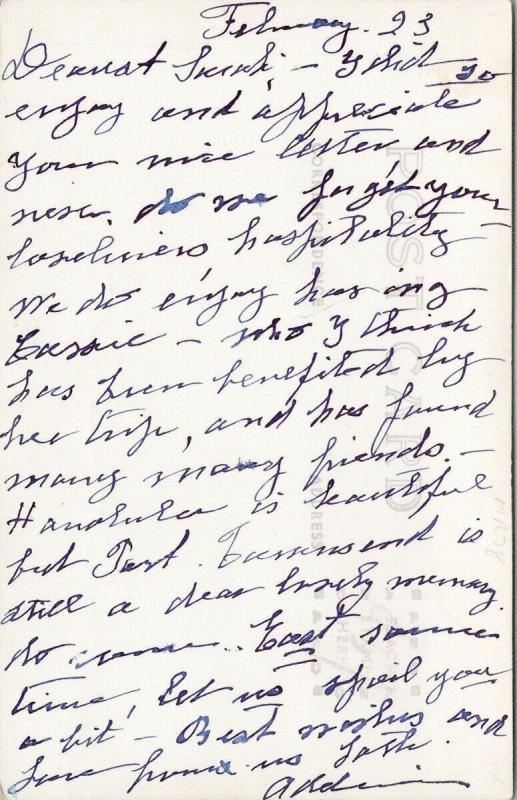 February. 23
Dearest Sarah, - I did so
enjoy and appreciate
your nice letter and
never do we forget your
loveliness hospitality -
We do enjoy having
Cassie - who I think
has been benefited by
her trip, and has found
many many friends. -
Honolulu is beautiful
but Port. Townsend is
still a dear lovely memory.
do come.. East some
time, let us spoil you
a bit - Best wishes and
Love from us both.
POST CARD
CORRESPONDENCE
ADDRESS